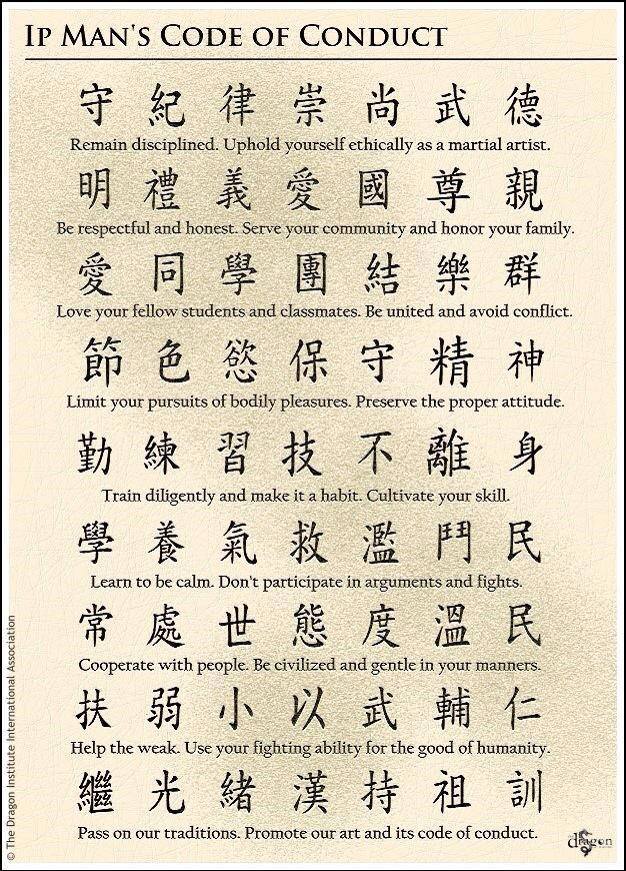 Ip Man's Code of Conduct
守紀律崇尚武德
Remain disciplined. Uphold yourself ethically as a martial artist.
明禮義愛國尊親
Be respectful and honest. Serve your community and honor your family.
愛同學團結樂群
Love your fellow students and classmates. Be united and avoid conflict.
節色慾保守精神
Limit your pursuits of bodily pleasures. Preserve the proper attitude.
勤練習技不離身
Train diligently and make it a habit. Cultivate your skill.
學養氣救濫鬥民
Learn to be calm. Don't participate in arguments and fights.
常處世態度溫民
Cooperate with people. Be civilized and gentle in your manners.
扶弱小以武輔仁
Help the weak. Use your fighting ability for the good of humanity.
繼光緒漢持祖訓
Pass on our traditions. Promote our art and its code of conduct.
© The Dragon Institute International Association
dragon